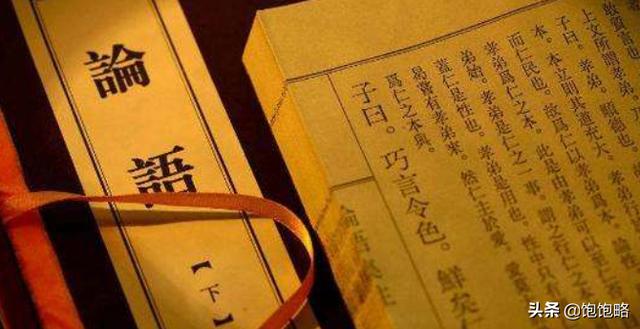 論語
【下】
敢質言也
上文所謂孝弟
子曰。孝弟。順德也
本。本立則其道充大。孝弟
而仁民也。故為仁以孝弟為本。論性
孝弟為仁之本。此是由孝弟可以至仁
弟始。孝弟是仁之一事。謂之行仁之本
蓋仁是性也。孝弟是用也。性中只有
曷嘗有孝弟來。然仁主於愛。愛莫
為仁之本與。
子曰。巧言令色。鮮矣
論語集註
头条 @饱饱略